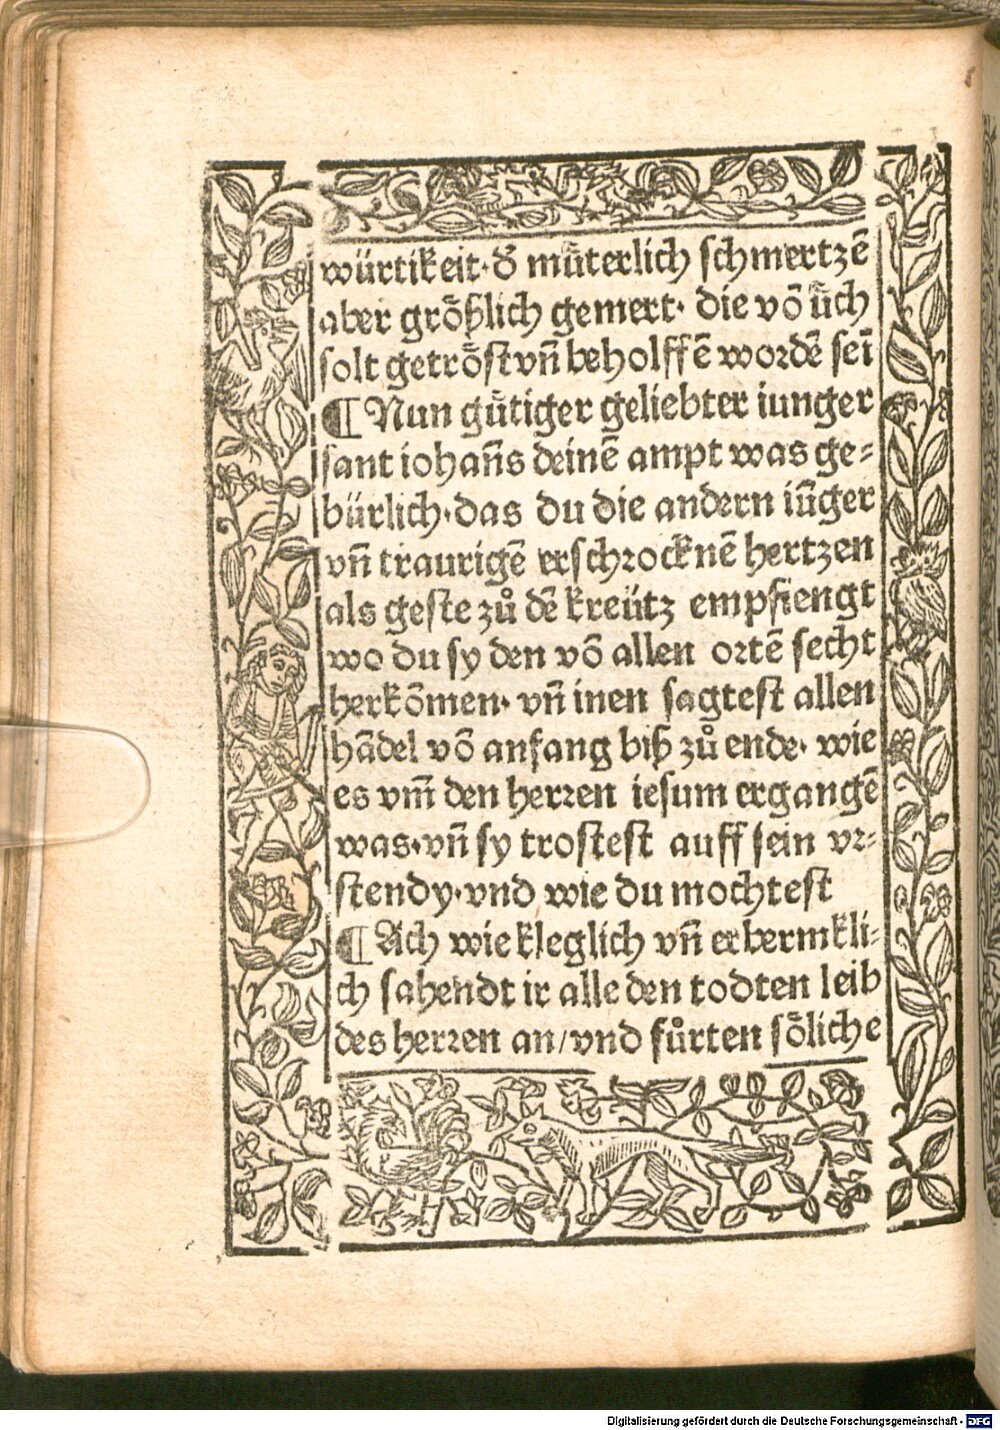 würtikeit· d̕ mũterlich schmertzẽ
aber grȫßlich gemert· die võ ũch
solt getrȫst vñ beholffẽ wordẽ seĩ
¶ Nun gütiger geliebter iunger
sant iohañs deinẽ ampt was ge⸗
bürlich· das du die andern iũger
vñ traurigẽ erschrocknẽ hertzen
als geste zů dẽ kreütz empfiengt
wo du sy den võ allen ortẽ secht
herkõmen· vñ inen sagtest allen
hãdel võ anfang biß zů ende· wie
es vm̃ den herren iesum ergangẽ
was· vñ sy trostest auff sein vr⸗
stendy· vnd wie du mochtest
¶ Ach wie kleglich vñ erbermkli⸗
ch sahendt ir alle den todten leib
des herren an/ vnd fůrten sȫliche
Digitalisierung gefördert durch die Deutsche Forschungsgemeinschaft - DFG